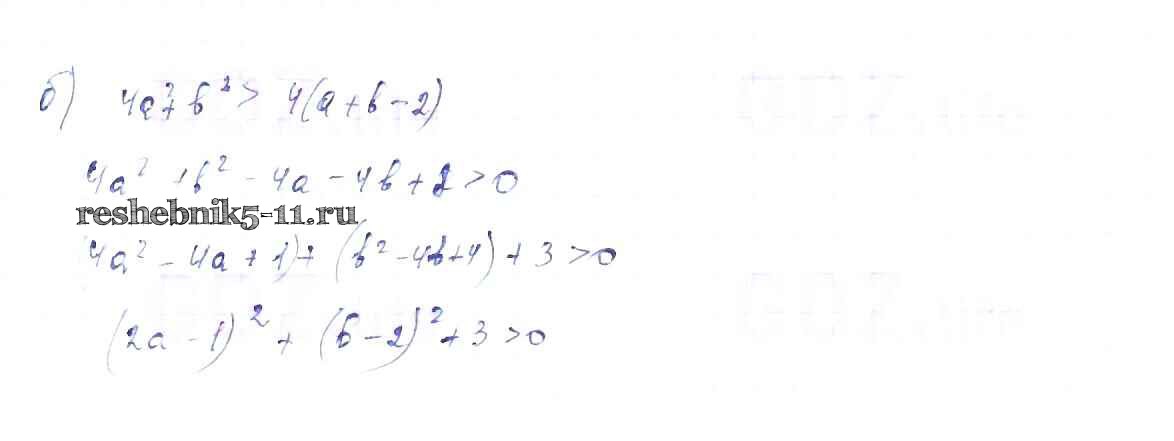 б) 4a² + b² > 4(a + b - 2)
4a² + b² - 4a - 4b + 2 > 0
reshebnik5-11.ru
4a² - 4a + 1) + (b² - 4b + 4) + 3 > 0
(2a - 1)² + (b - 2)² + 3 > 0